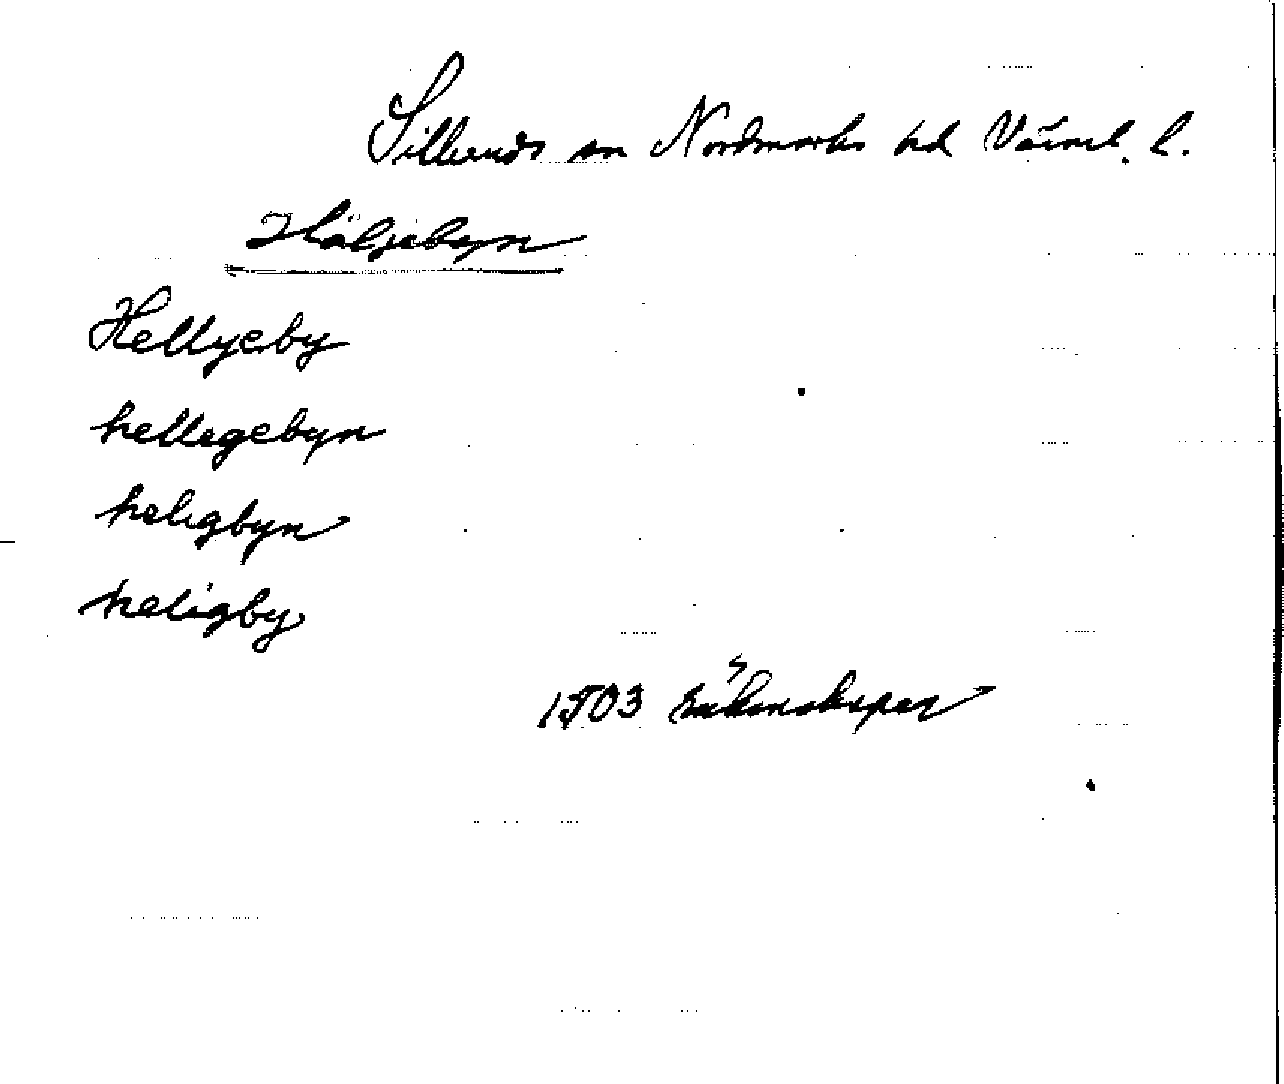 Silleruds sn Nordmarks hd Värml. l.
Häljebyn
Hellyeby
hellegebyn
heligbyn
heligby
1503 räkenskaper